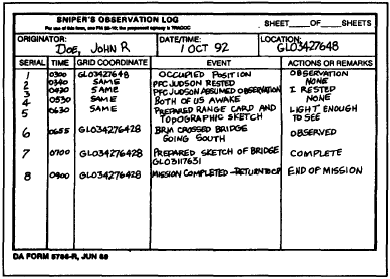 SNIPER'S OBSERVATION LOG
For use of this form, see FM 23-10; the proponent agency is TRADOC
SHEET____OF____SHEETS
ORIGINATOR: DOE, JOHN R
DATE/TIME: 1 OCT 92
LOCATION: GL03427648
SERIAL TIME GRID COORDINATE EVENT ACTIONS OR REMARKS
1 0300 GL03427648 OCCUPIED POSITION OBSERVATION
2 0340 SAME PFC JUDSON RESTED NONE
3 0430 SAME PFC JUDSON ASSUMED OBSERVATION I RESTED
4 0530 SAME BOTH OF US AWAKE NONE
5 0630 SAME PREPARED RANGE CARD AND LIGHT ENOUGH
TOPOGRAPHIC SKETCH TO SEE
6 0655 GL034276428 BRM CROSSED BRIDGE OBSERVED
GOING SOUTH
7 0700 GL034276428 PREPARED SKETCH OF BRIDGE COMPLETE
GL03117631
8 0900 GL034276428 MISSION COMPLETED - RETURN TO CP END OF MISSION
DA FORM 5786-R, JUN 89